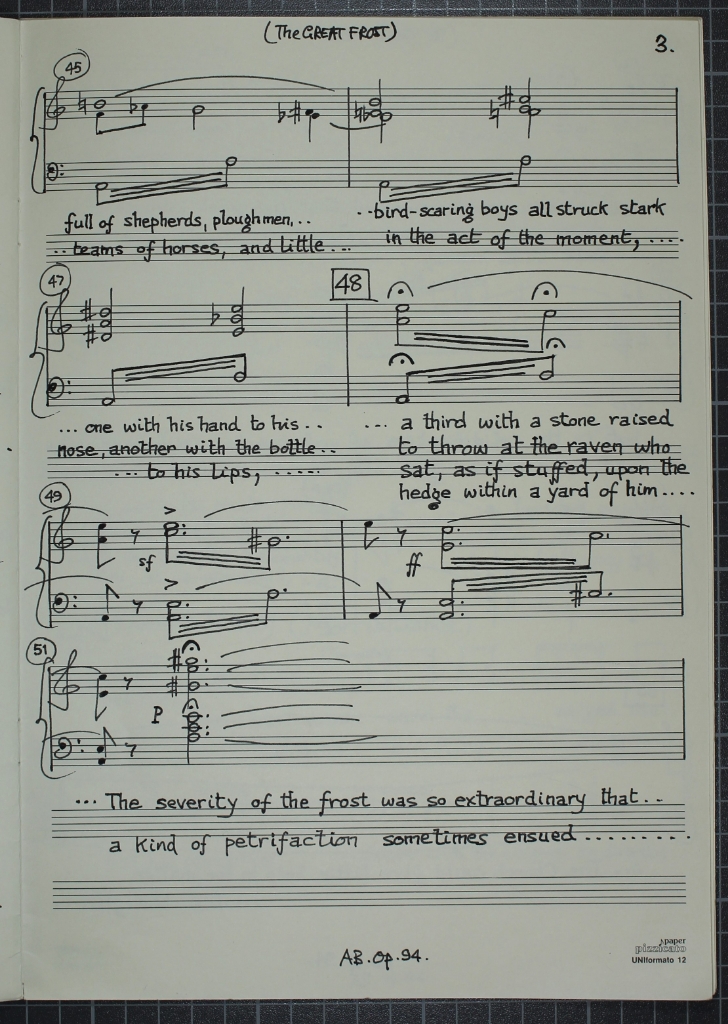 (The GREAT FROST)
3.
45
full of shepherds, ploughmen, ..
.. teams of horses, and little ...
..bird-scaring boys all struck stark
in the act of the moment, ....
47
48
... one with his hand to his ..
nose, another with the bottle ..
... to his lips, .....
... a third with a stone raised
to throw at the raven who
sat, as if stuffed, upon the
hedge within a yard of him ....
49
sf
ff
51
P
... The severity of the frost was so extraordinary that ..
a kind of petrifaction sometimes ensued .........
AB. Op. 94.
paper
pizzicato
UNIformato 12